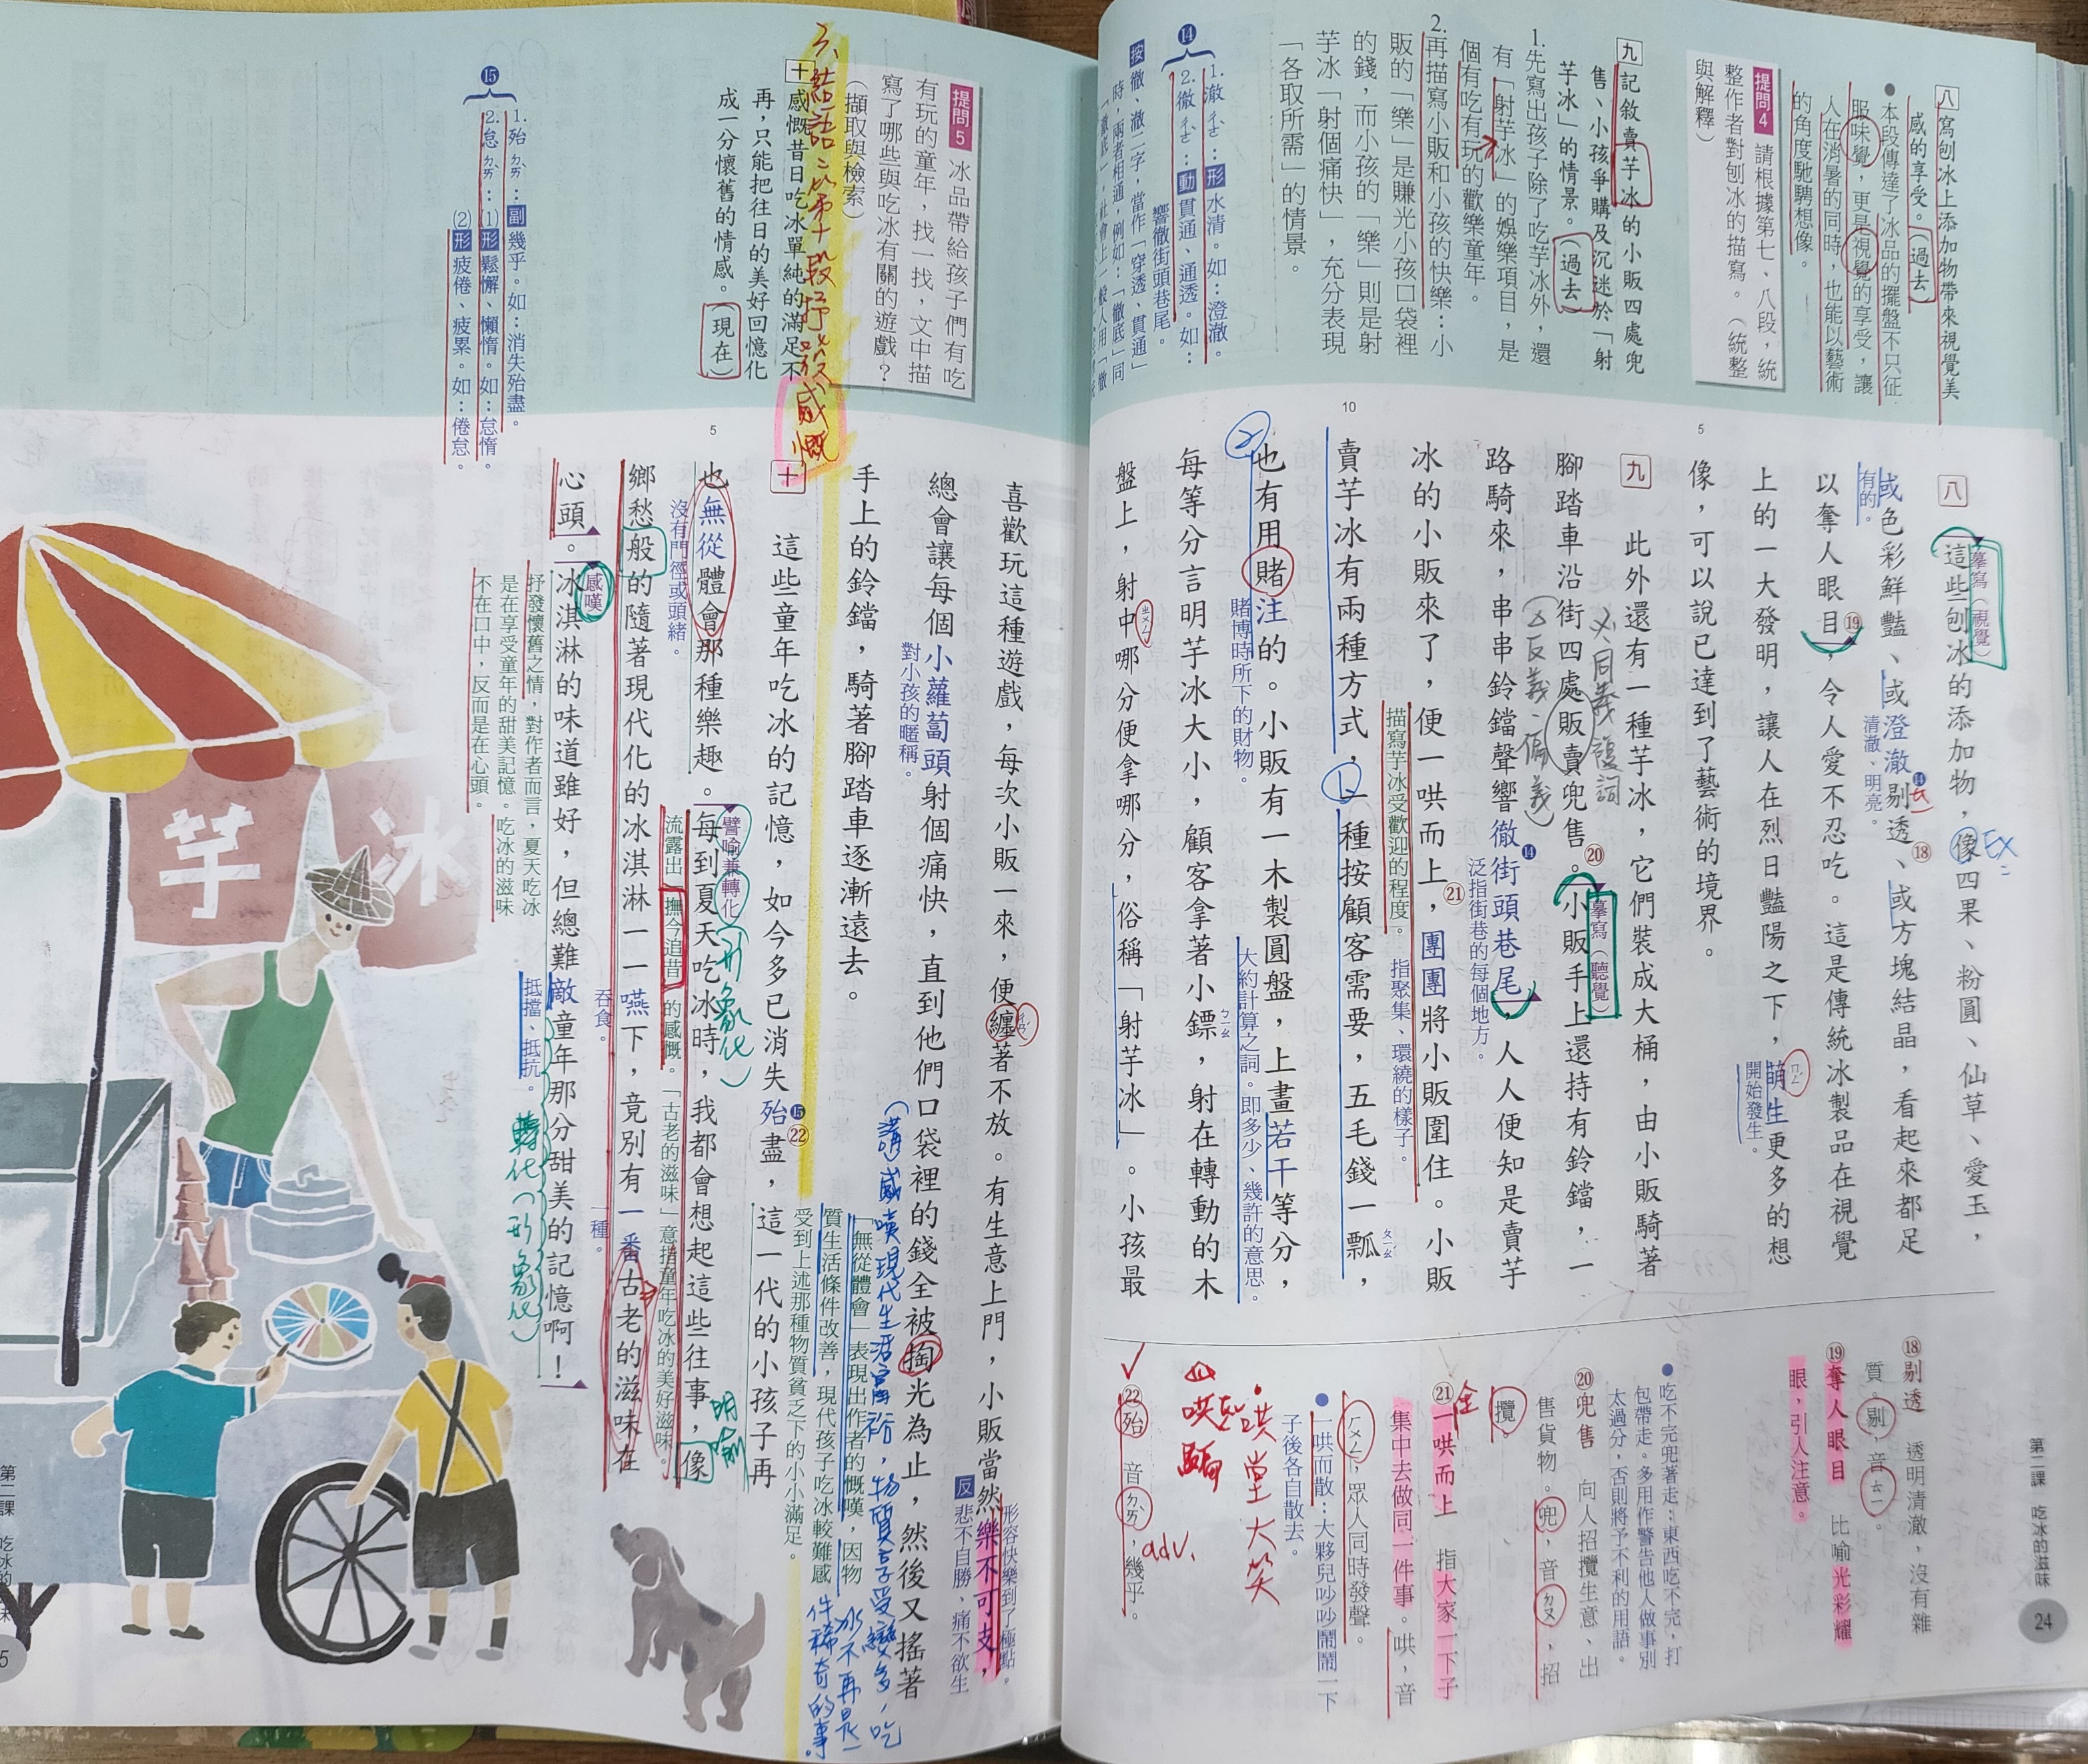 八 寫刨冰上添加物帶來視覺美
感的享受。(過去)
●本段傳達了冰品的擺盤不只征
服味覺,更是視覺的享受,讓
人在消暑的同時,也能以藝術
的角度馳騁想像。
提問4 請根據第七、八段,統
整作者對刨冰的描寫。(統整
與解釋)
九 記敘賣芋冰的小販四處兜
售、小孩爭購及沉迷於「射
芋冰」的情景。(過去)
1.先寫出孩子除了吃芋冰外,還
有「射芋冰」的娛樂項目,是
個有吃有玩的歡樂童年。
2.再描寫小販和小孩的快樂:小
販的「樂」是賺光小孩口袋裡
的錢,而小孩的「樂」則是射
芋冰「射個痛快」,充分表現
「各取所需」的情景。
⓮
1.澈ㄔㄜˋ:形水清。如:澄澈。
2.徹ㄔㄜˋ:動貫通、通透。如:
響徹街頭巷尾。
按 徹、澈二字,當作「穿透、貫通」
時,兩者相通,例如:「徹底」同
5
10
八 這些刨冰的添加物,像四果、粉圓、仙草、愛玉,
摹寫(視覺)
EX:
或色彩鮮豔、或澄澈⓮剔透⑱、或方塊結晶,看起來都足
有的。
清澈、明亮。
以奪人眼目⑲,令人愛不忍吃。這是傳統冰製品在視覺
上的一大發明,讓人在烈日豔陽之下,萌生更多的想
ㄇㄥˊ
開始發生。
像,可以說已達到了藝術的境界。
九 此外還有一種芋冰,它們裝成大桶,由小販騎著
腳踏車沿街四處販賣兜售⑳。小販手上還持有鈴鐺,一
同義複詞
反義
偏義
摹寫(聽覺)
路騎來,串串鈴鐺聲響徹⓮街頭巷尾,人人便知是賣芋
泛指街巷的每個地方。
冰的小販來了,便一哄而上㉑,團團將小販圍住。小販
描寫芋冰受歡迎的程度。
指聚集、環繞的樣子。
賣芋冰有兩種方式,一種按顧客需要,五毛錢一瓢,
ㄆㄧㄠˊ
也有用賭注的。小販有一木製圓盤,上畫若干等分,
賭博時所下的財物。
大約計算之詞。即多少、幾許的意思。
每等分言明芋冰大小,顧客拿著小鏢,射在轉動的木
ㄅㄧㄠ
盤上,射中哪分便拿哪分,俗稱「射芋冰」。小孩最
ㄓㄨㄥˋ
⑱剔透 透明清澈,沒有雜
質。剔,音ㄊㄧ。
⑲奪人眼目 比喻光彩耀
眼,引人注意。
●吃不完兜著走:東西吃不完,打
包帶走。多用作警告他人做事別
太過分,否則將予不利的用語。
⑳兜售 向人招攬生意、出
售貨物。兜,音ㄉㄡ,招
攬。
㉑一哄而上 指大家一下子
集中去做同一件事。哄,音
ㄏㄨㄥ,眾人同時發聲。
●一哄而散:大夥兒吵吵鬧鬧一下
子後各自散去。
哄堂大笑
哄騙
㉒殆 音ㄉㄞˋ,幾乎。
adv.
第二課 吃冰的滋味
24
提問5 冰品帶給孩子們有吃
有玩的童年,找一找,文中描
寫了哪些與吃冰有關的遊戲?
(擷取與檢索)
三、結語:以第十段抒發感慨
十 感慨昔日吃冰單純的滿足不
再,只能把往日的美好回憶化
成一分懷舊的情感。(現在)
⓯
1.殆ㄉㄞˋ:副幾乎。如:消失殆盡。
2.怠ㄉㄞˋ:(1)形鬆懈、懶惰。如:怠惰。
(2)形疲倦、疲累。如:倦怠。
5
喜歡玩這種遊戲,每次小販一來,便纏著不放。有生意上門,小販當然樂不可支,
ㄔㄢˊ
形容快樂到了極點。
反 悲不自勝、痛不欲生
總會讓每個小蘿蔔頭射個痛快,直到他們口袋裡的錢全被掏光為止,然後又搖著
對小孩的暱稱。
手上的鈴鐺,騎著腳踏車逐漸遠去。
十 這些童年吃冰的記憶,如今多已消失殆⓯㉒盡,這一代的小孩子再
「無從體會」表現出作者的慨嘆,因物
質生活條件改善,現代孩子吃冰較難感
受到上述那種物質貧乏下的小小滿足。
也無從體會那種樂趣。每到夏天吃冰時,我都會想起這些往事,像
沒有門徑或頭緒。
譬喻兼轉化(形象化)
明喻
流露出撫今追昔的感慨。
「古老的滋味」意指童年吃冰的美好滋味。
鄉愁般的隨著現代化的冰淇淋一一嚥下,竟別有一番古老的滋味在
吞食。
一種。
心頭。冰淇淋的味道雖好,但總難敵童年那分甜美的記憶啊!
感嘆
抵擋、抵抗。
轉化(形象化)
抒發懷舊之情,對作者而言,夏天吃冰
是在享受童年的甜美記憶。吃冰的滋味
不在口中,反而是在心頭。
芋冰
第二課 吃冰的